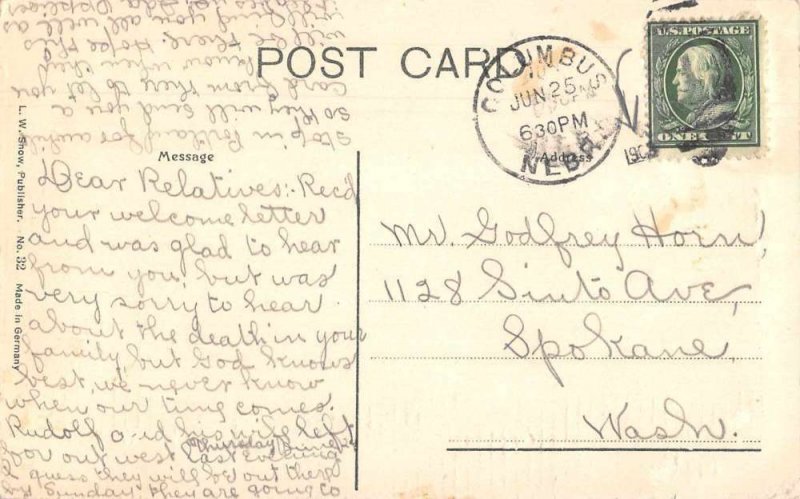 POST CARD
Message
Address
COLUMBUS
JUN 25
630PM
NEBR.
190
U.S. POSTAGE
ONE CENT
L. W. Snow, Publisher. No. 32 Made in Germany
Dear Relatives:- Recd
your welcome letter
and was glad to hear
from you, but was
very sorry to hear
about the death in your
family, but God knows
best, we never know
when our time comes.
Rudolf and his wife left
Thursday June
for out west last evening
I guess they will be out there
by Sunday. They are going to
stop in Portland for awhile
so they will send you a
card from there to let you
know when they
will be there. Hope this
will find you all well as
Mr. Godfrey Horn,
1128 Sinto Ave,
Spokane,
Wash.